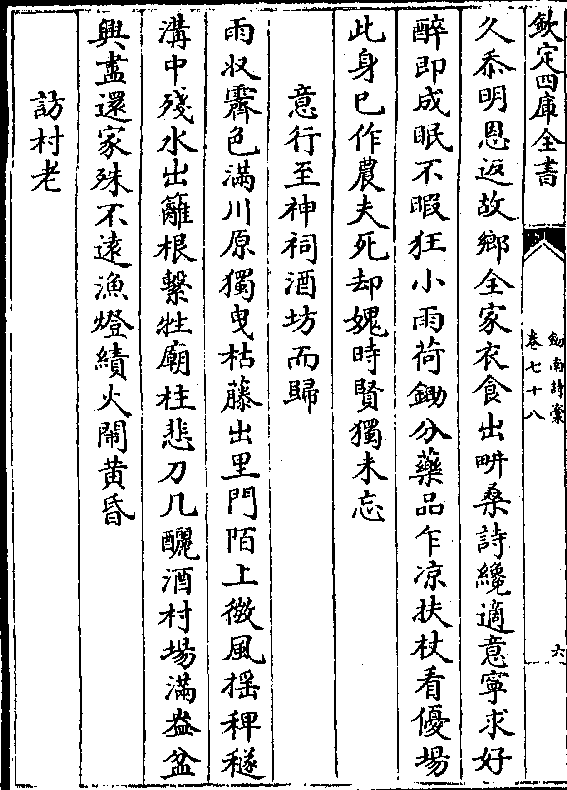 欽定四庫全書
劔南詩稾
卷七十八
六
久忝明恩返故鄉全家衣食出畊桑詩纔適意寧求好
醉即成眠不暇狂小雨荷鋤分藥品乍凉扶杖看優場
此身已作農夫死却媿時賢獨未忘
意行至神祠酒坊而歸
雨收霽色滿川原獨曳枯藤出里門陌上微風揺稗穟
溝中殘水出籬根繫牲廟柱悲刀几釃酒村場滿盎盆
興盡還家殊不逺漁燈績火閙黄昏
訪村老